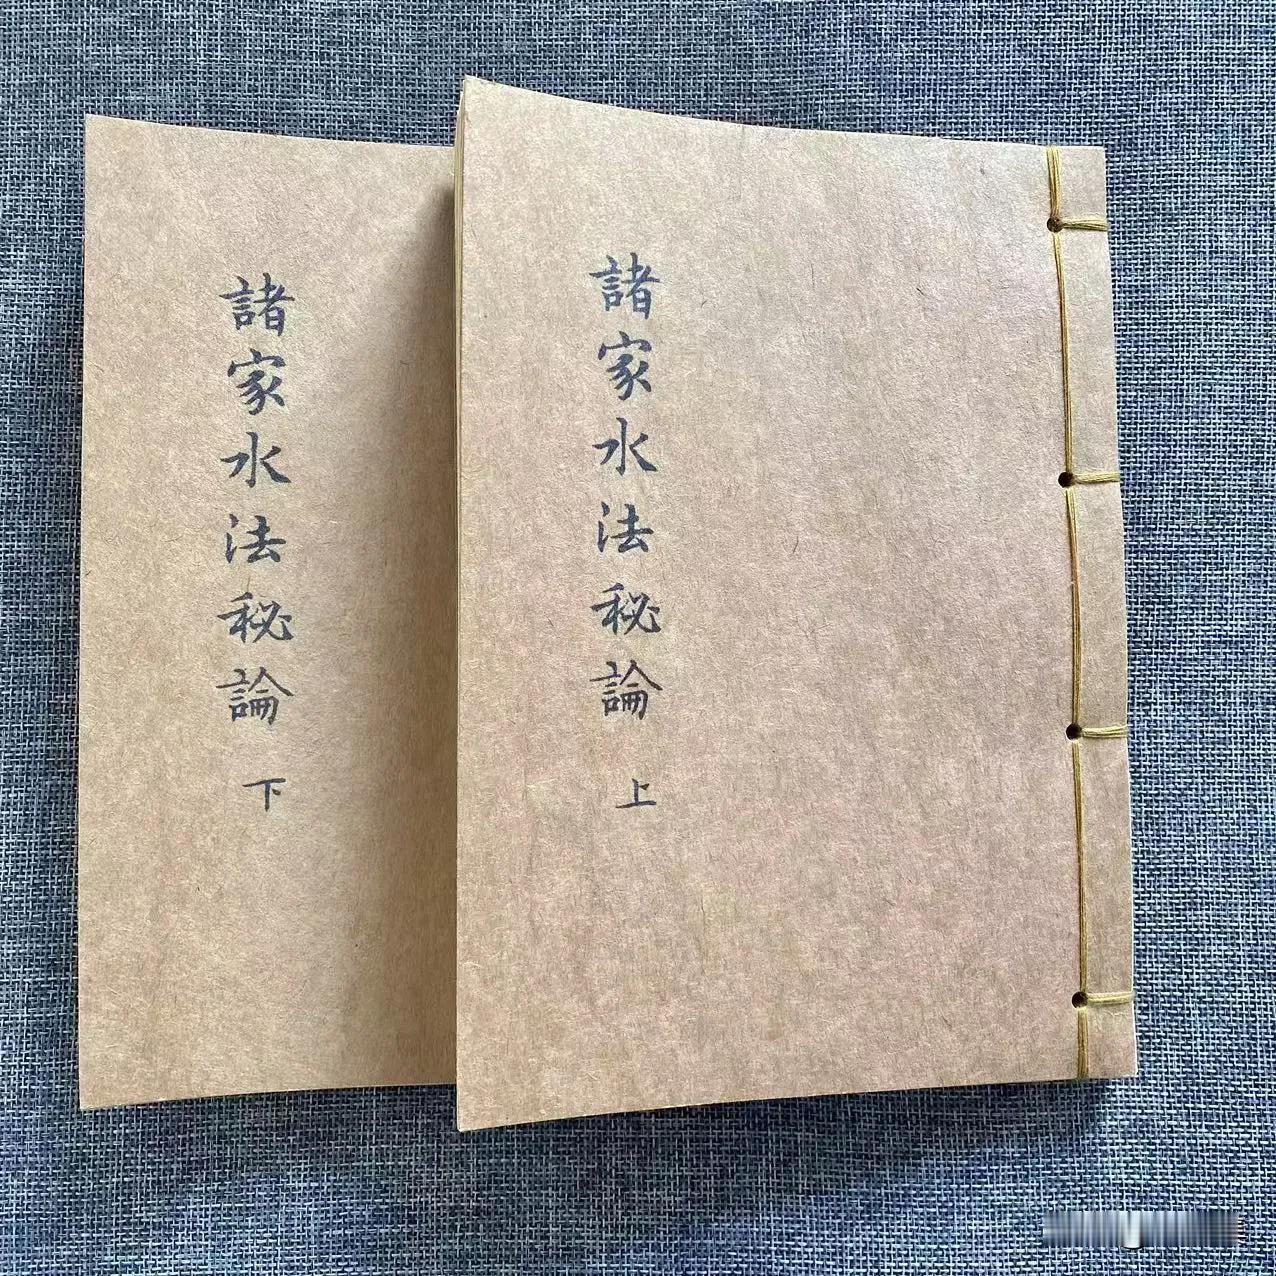 諸家水法秘論 上
諸家水法秘論 下